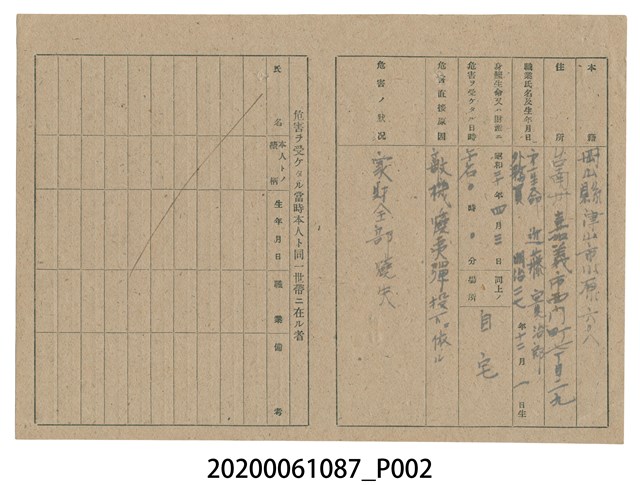 本籍 岡山縣津山市川原六八
住所 台南州嘉義市西門町七丁目二九
職業氏名及生年月日 外務員 近藤 治郎 明治二七年十二月一日生
身體生命又ハ財產ニ危害ヲ受ケタル日時 昭和二十年四月三日 午后 時 分
同上ノ場所 自宅
危害直接原因 敵機燒夷彈投下ニ依ル
危害ノ狀況 家財全部燒失
危害ヲ受ケタル當時本人ト同一世帶ニ在ル者
氏名 本人トノ續柄 生年月日 職業 備考
20200061087_P002